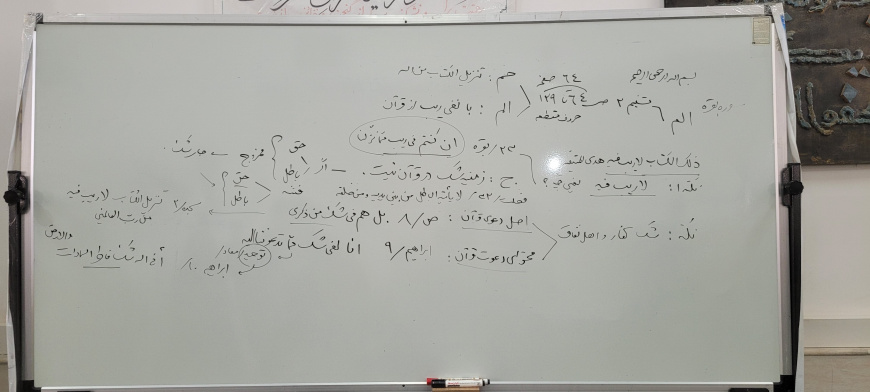 بسم الله الرحمن الرحیم
سوره بقره
الم
تسنیم ۲ ص ۶۴ تا ۱۲۹
۶۴ صفحه
حروف مقطعه
حم : تنزیل الکتاب من الله
الم : با نفی ریب از قرآن
ذلک الکتاب لاریب فیه هدی للمتقین
نکته ۱ : لاریب فیه یعنی چه؟
۲۳/ بقره ان کنتم فی ریب مما نزلنا
ج : زمینه شک در قرآن نیست.
حق
باطل
ممزوج
جای شک.
فصلت/ ۴۲ / لا یأتیه الباطل من بین یدیه و من خلفه
فتنه
حق
باطل
سجده/۲ تنزیل الکتاب لاریب فیه
من رب العالمین
نکته : شک کفار و اهل نفاق
اصل دعوی قرآن : ص/ ۸ بل هم فی شک من ذکری
محتوای دعوت قرآن : ابراهیم/ ۹ انا لفی شک مما تدعوننا الیه
توحید/ معاد/
ابراهیم/ ۱۰ أفی الله شک فاطر السماوات
والارض